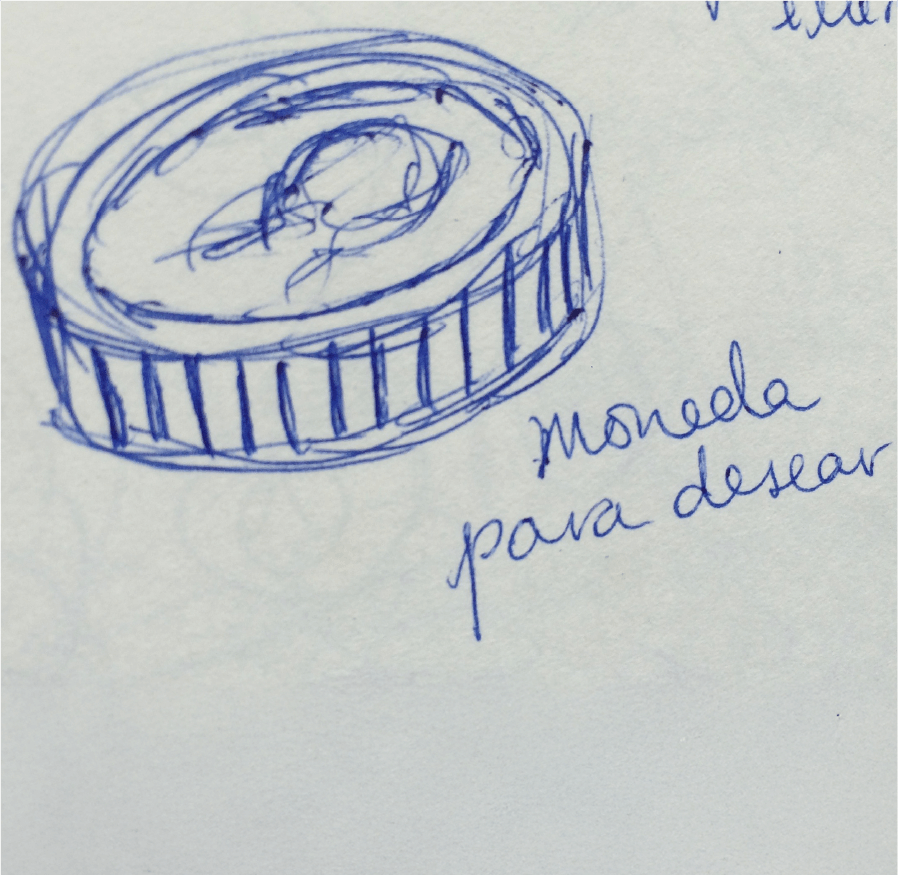 Moneda
para desear